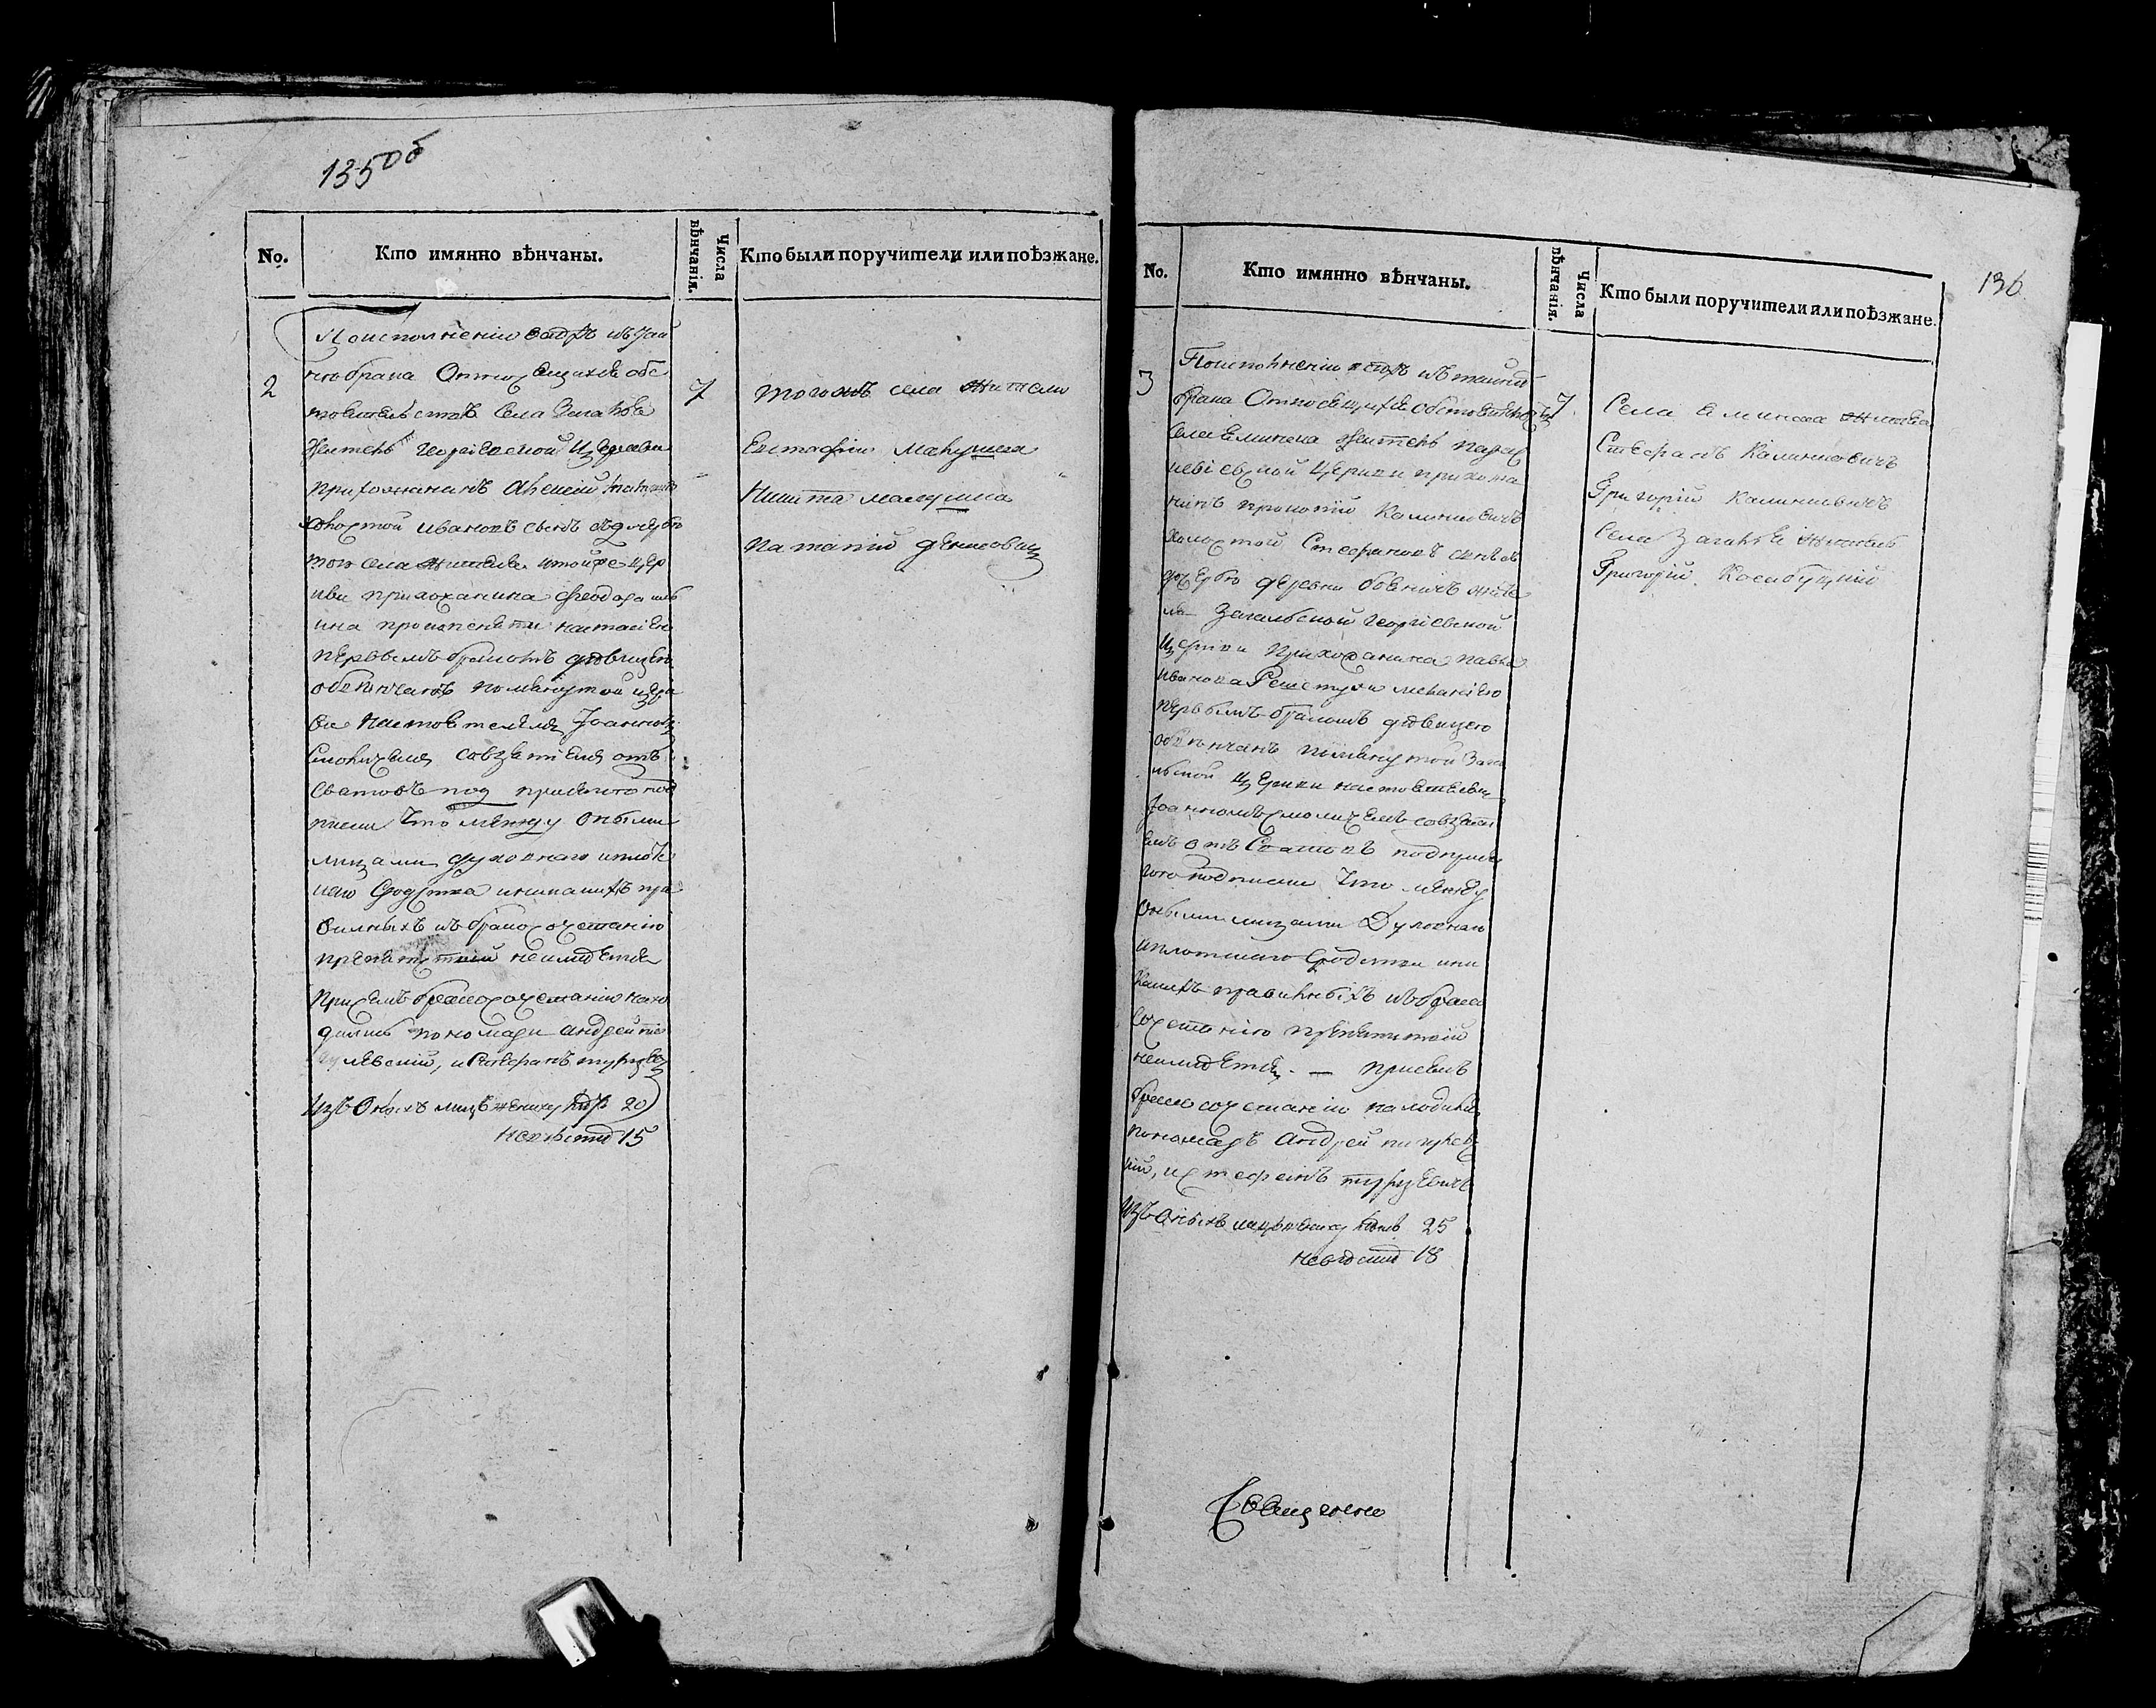 135об
No.
Кто имянно вѣнчаны.
Числа вѣнчанія.
Кто были поручители или поѣзжане.
2
по исполненіи всѣхъ къ тай
не брака относящихся обс
тоятельствъ села Загалья
житель Георгіевской церкви
прихожанинъ
холостой Ивановъ сынъ съ дочерью
того села жителя и той же цер
кви прихожанина Феодора
первымъ бракомъ дѣвицею
обвѣнчанъ помянутой церк
ви настоятелемъ Іоанномъ
Смоличемъ со взятіемъ отъ
сватовъ под присягою под
писки что между оными
лицами духовнаго и плотс
каго сродства и никакихъ пра
вильныхъ къ бракосочетанію
препятствій неимѣется
При семъ бракосочетаніи нахо
дились пономари Андрей
и Стефанъ Туркевич
Изъ оныхъ лицъ жениху лѣтъ 20
невѣстѣ 15
7
того жъ села жители
Евстафій Макуша
Никита Макуша
Патапій Денисовец
136
No.
Кто имянно вѣнчаны.
Числа вѣнчанія.
Кто были поручители или поѣзжане.
3
По исполненіи всѣхъ къ тайнѣ
брака относящихся обстоятельствъ
села Емильча житель Парас
кевіевской церкви прихожа
нинъ Прокопій Калиновичъ
холостой Стефановъ сынъ съ
дочерью деревни жите
ля Загальской Георгіевской
церкви прихожанина Павла
Иванова Решетухи Меланіею
первымъ бракомъ дѣвицею
обвѣнчанъ помянутой Зага
льской церкви настоятелемъ
Іоанномъ Смоличемъ со взяті
емъ отъ сватовъ под прися
гою подписки что между
оными лицами духовнаго
и плотскаго сродства и ни
какихъ правильныхъ къ брако
сочетанію препятствій
неимѣется. — При семъ
бракосочетаніи находились
пономарь Андрей
и Стефанъ Туркевичъ
Изъ оныхъ лицъ жениху лѣтъ 25
невѣстѣ 18
7
Села Емильча жители
Стефанъ Калиновичъ
Григорій Калиновичъ
Села Загалья житель
Григорій Косабуцкій
Священно